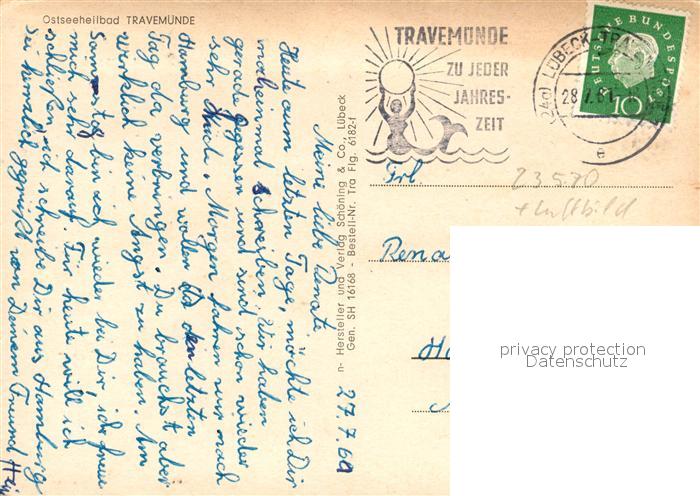 Ostseeheilbad TRAVEMÜNDE
Meine liebe Renate
Heute am letzten Tage, möchte ich Dir
noch einmal schreiben. Wir haben
gerade gegessen und sind schon wieder
sehr Morgen fahren wir nach
Hamburg und wollen da den letzten
Tag da verbringen. Du brauchst aber
wirklich keine Angst zu haben. Am
Samstag bin ich wieder bei Dir, ich freue
mich sehr darauf. Für heute will ich
schließen, ich schreibe Dir aus Hamburg
Sei herzlich gegrüßt von Deinem Freund
n- Hersteller und Verlag Schöning & Co., Lübeck
Gen. SH 16168 - Bestell-Nr. Tra Flg. 6182-f
27.7.60
TRAVEMÜNDE
ZU JEDER
JAHRES-
ZEIT
(24a) LÜBECK-TRA
28.7.61
e
DEUTSCHE BUNDESPOST
10
Frl.
23570
+ Luftbild
Rena
Ha
privacy protection
Datenschutz